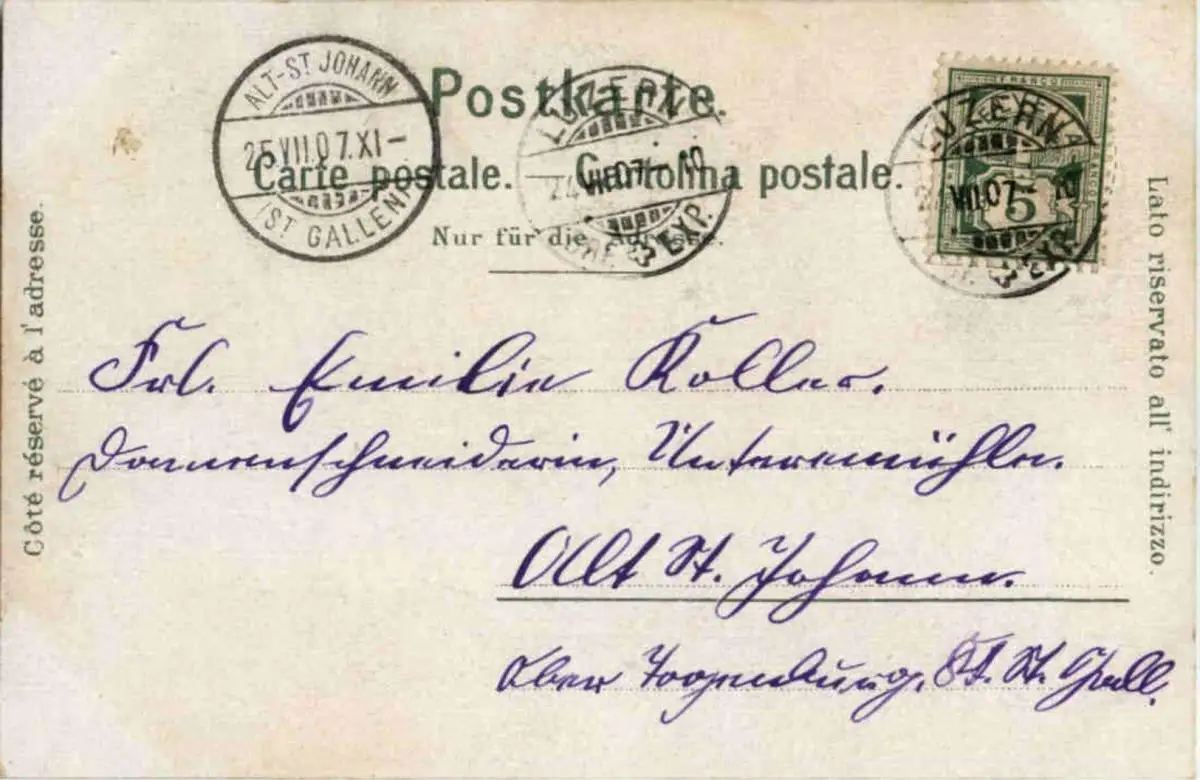 Postkarte.
Carte postale. Cartolina postale.
Nur für die Adresse.
Côté réservé à l'adresse.
Lato riservato all' indirizzo.
ALT-ST JOHANN
25.VII.07.XI-
(ST GALLEN)
LUZERN
24.VII.07.- 10
EXP.
FRANCO
LUZERN
VII.07
10
5
EXP.
Frl. Emilie Koller.
Damenschneiderin, Untermühle.
Alt St. Johann.
Ober Toggenburg. Kt. St. Gall.